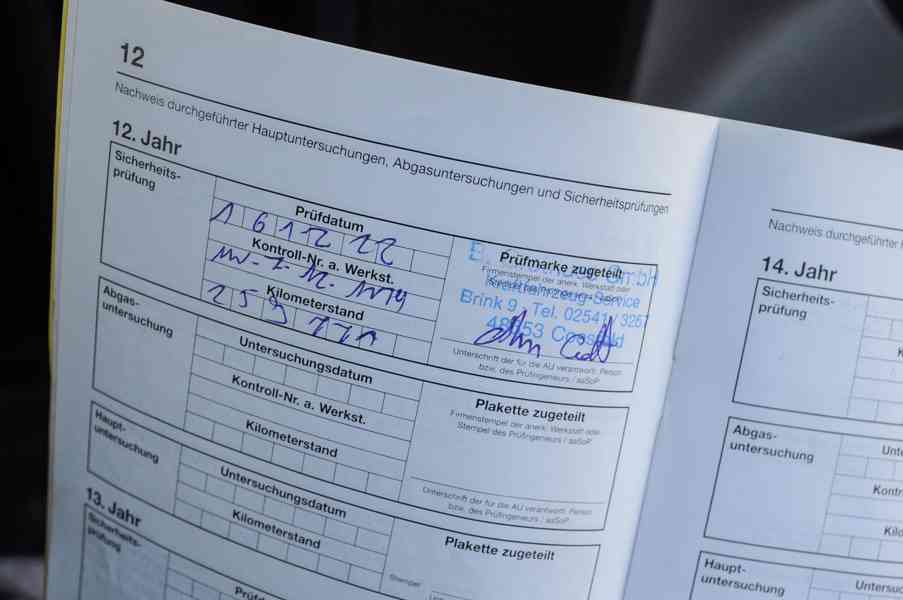 12
Nachweis durchgeführter Hauptuntersuchungen, Abgasuntersuchungen und Sicherheitsprüfungen
12. Jahr
Sicherheits-
prüfung
Prüfdatum
161222
Kontroll-Nr. a. Werkst.
Kilometerstand
259
Prüfmarke zugeteilt
Firmenstempel der anerk. Werkstatt oder
GmbH
Kraftfahrzeug-Service
Brink 9, Tel. 02541 / 3267
48653 Coesfeld
Unterschrift der für die AU verantwort. Person
bzw. des Prüfingenieurs / aaSoP
Abgas-
untersuchung
Untersuchungsdatum
Kontroll-Nr. a. Werkst.
Kilometerstand
Plakette zugeteilt
Firmenstempel der anerk. Werkstatt oder
Stempel des Prüfingenieurs / aaSoP
Unterschrift der für die AU verantwort. Person
bzw. des Prüfingenieurs / aaSoP
Haupt-
untersuchung
Untersuchungsdatum
Kilometerstand
Plakette zugeteilt
Stempel
13. Jahr
Sicherheits-
prüfung
Nachweis durchgeführter
14. Jahr
Sicherheits-
prüfung
Abgas-
untersuchung
Haupt-
untersuchung